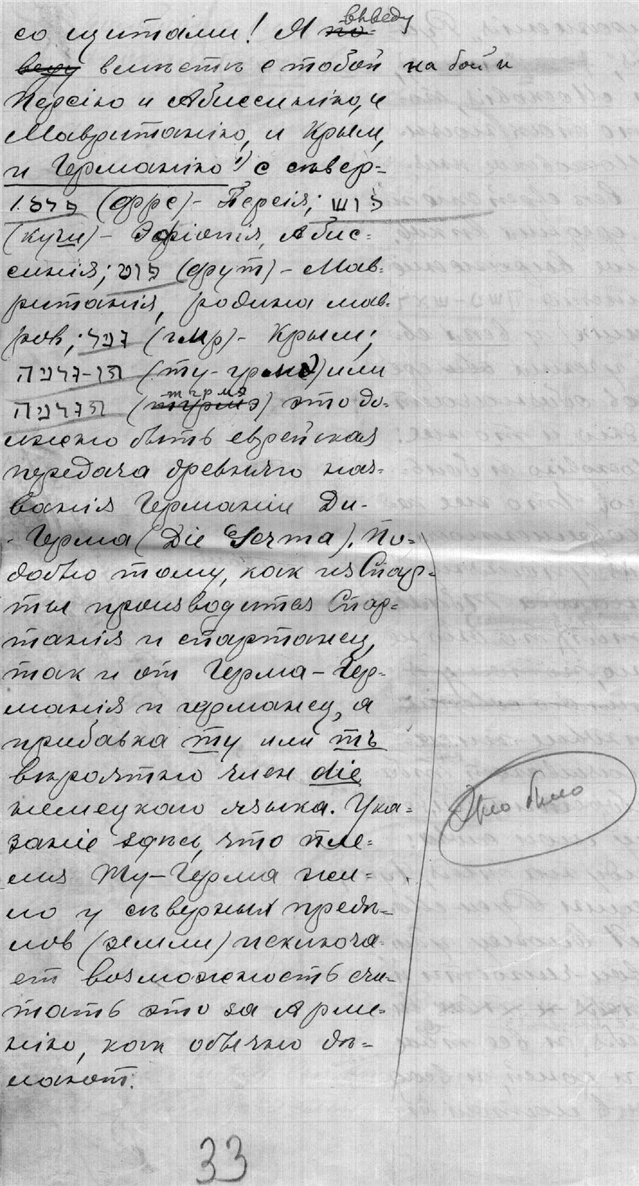 со щитами! Я по-
выведу
веду вместѣ с тобой на бой и
Персію и Абиссинію, и
Мавританію, и Крым,
и Германію ¹) с сѣвер-
פרס (фрс) – Персія; כוש
(куш) – Эфіопія, Абис-
синія; פוט (фут) – Мав-
ританія, родина мав-
ров; (гмр) – Крым;
(ту-грмэ) или
тгрмэ
это до-
лжно быть еврейская
передача древняго наз-
ванія Германіи Ди-
-Герма (Die Germa). По-
добно тому, как из Спар-
ты производится Спар-
танія и спартанец,
так и от Герма – Гер-
манія и германец, а
прибавка ту или тъ
вѣроятно член die
немецкаго языка. Ука-
заніе здѣсь, что пле-
мя Ту-Герма жи-
ло у сѣверных предѣ-
лов (земли) исключа-
ет возможность счи-
тать это за Арме-
нію, как обычно дѣ-
лают.
Это было
33